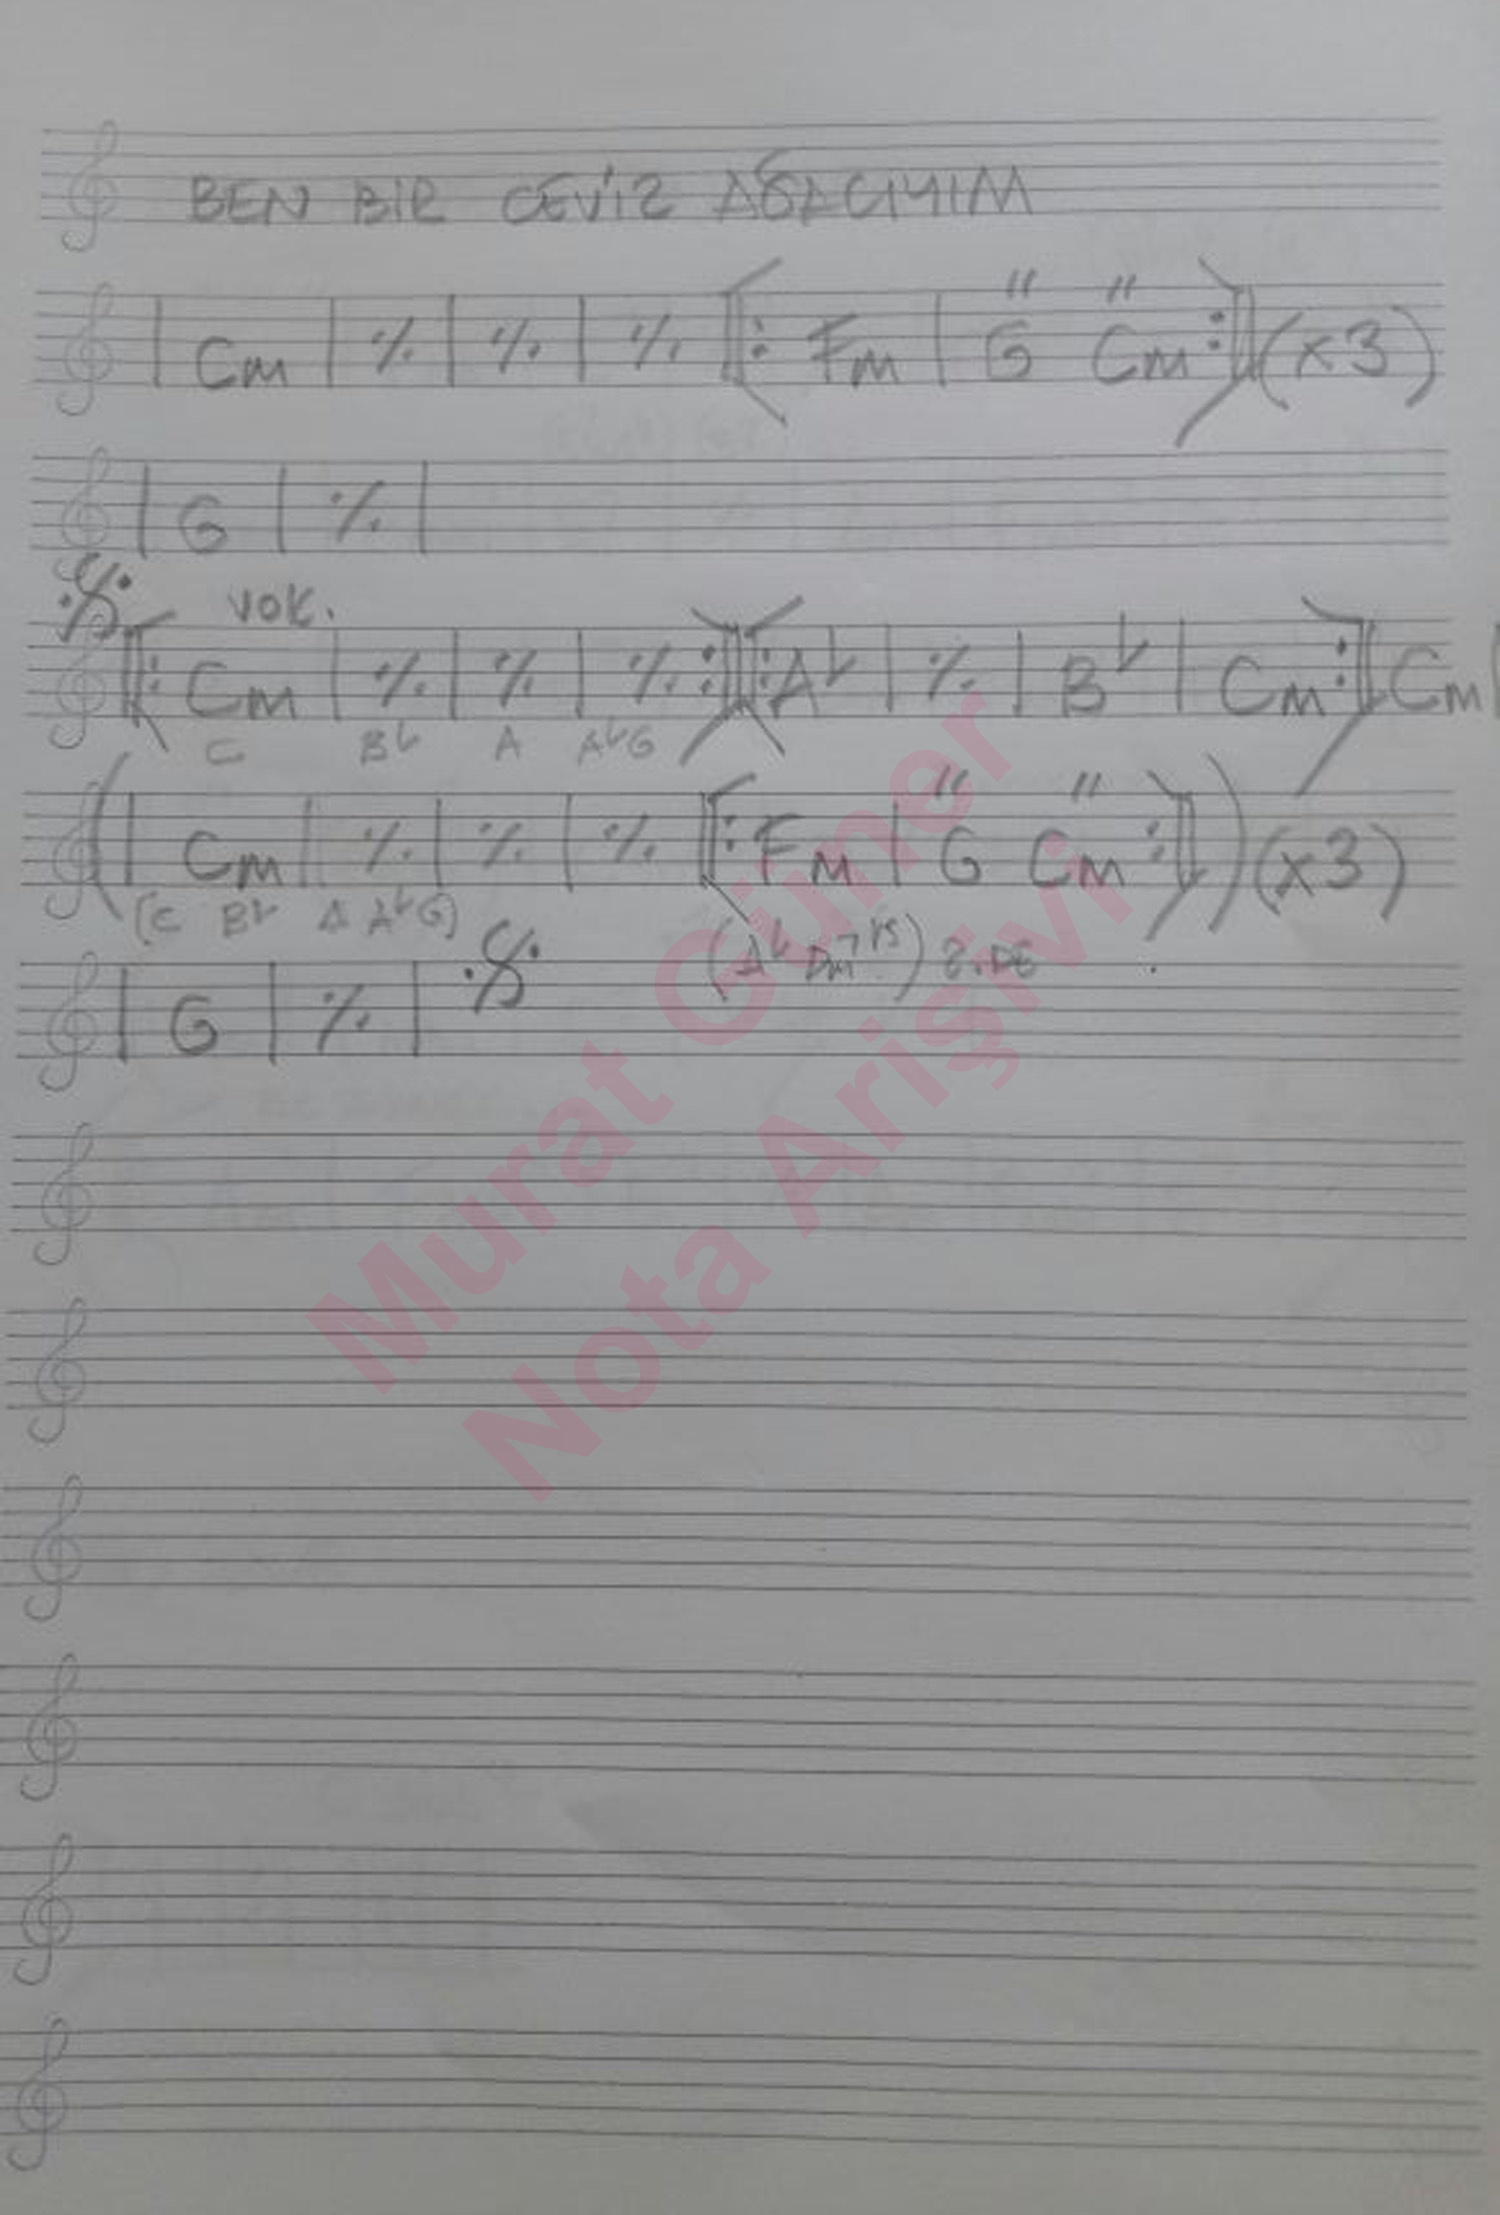 BEN BİR CEVİZ AĞACIYIM
| Cm | ٪ | ٪ | ٪ |: Fm | G Cm :| (x3)
| G | ٪ |
VOK.
|: Cm | ٪ | ٪ | ٪ :|: A♭ | ٪ | B♭ | Cm :| Cm |
C B♭ A A♭G
( | Cm | ٪ | ٪ | ٪ |: Fm | G Cm :| ) (x3)
(C B♭ A A♭ G)
(A♭ Dm7♭5) 2.DE
| G | ٪ |
Murat Güner
Nota Arişivi